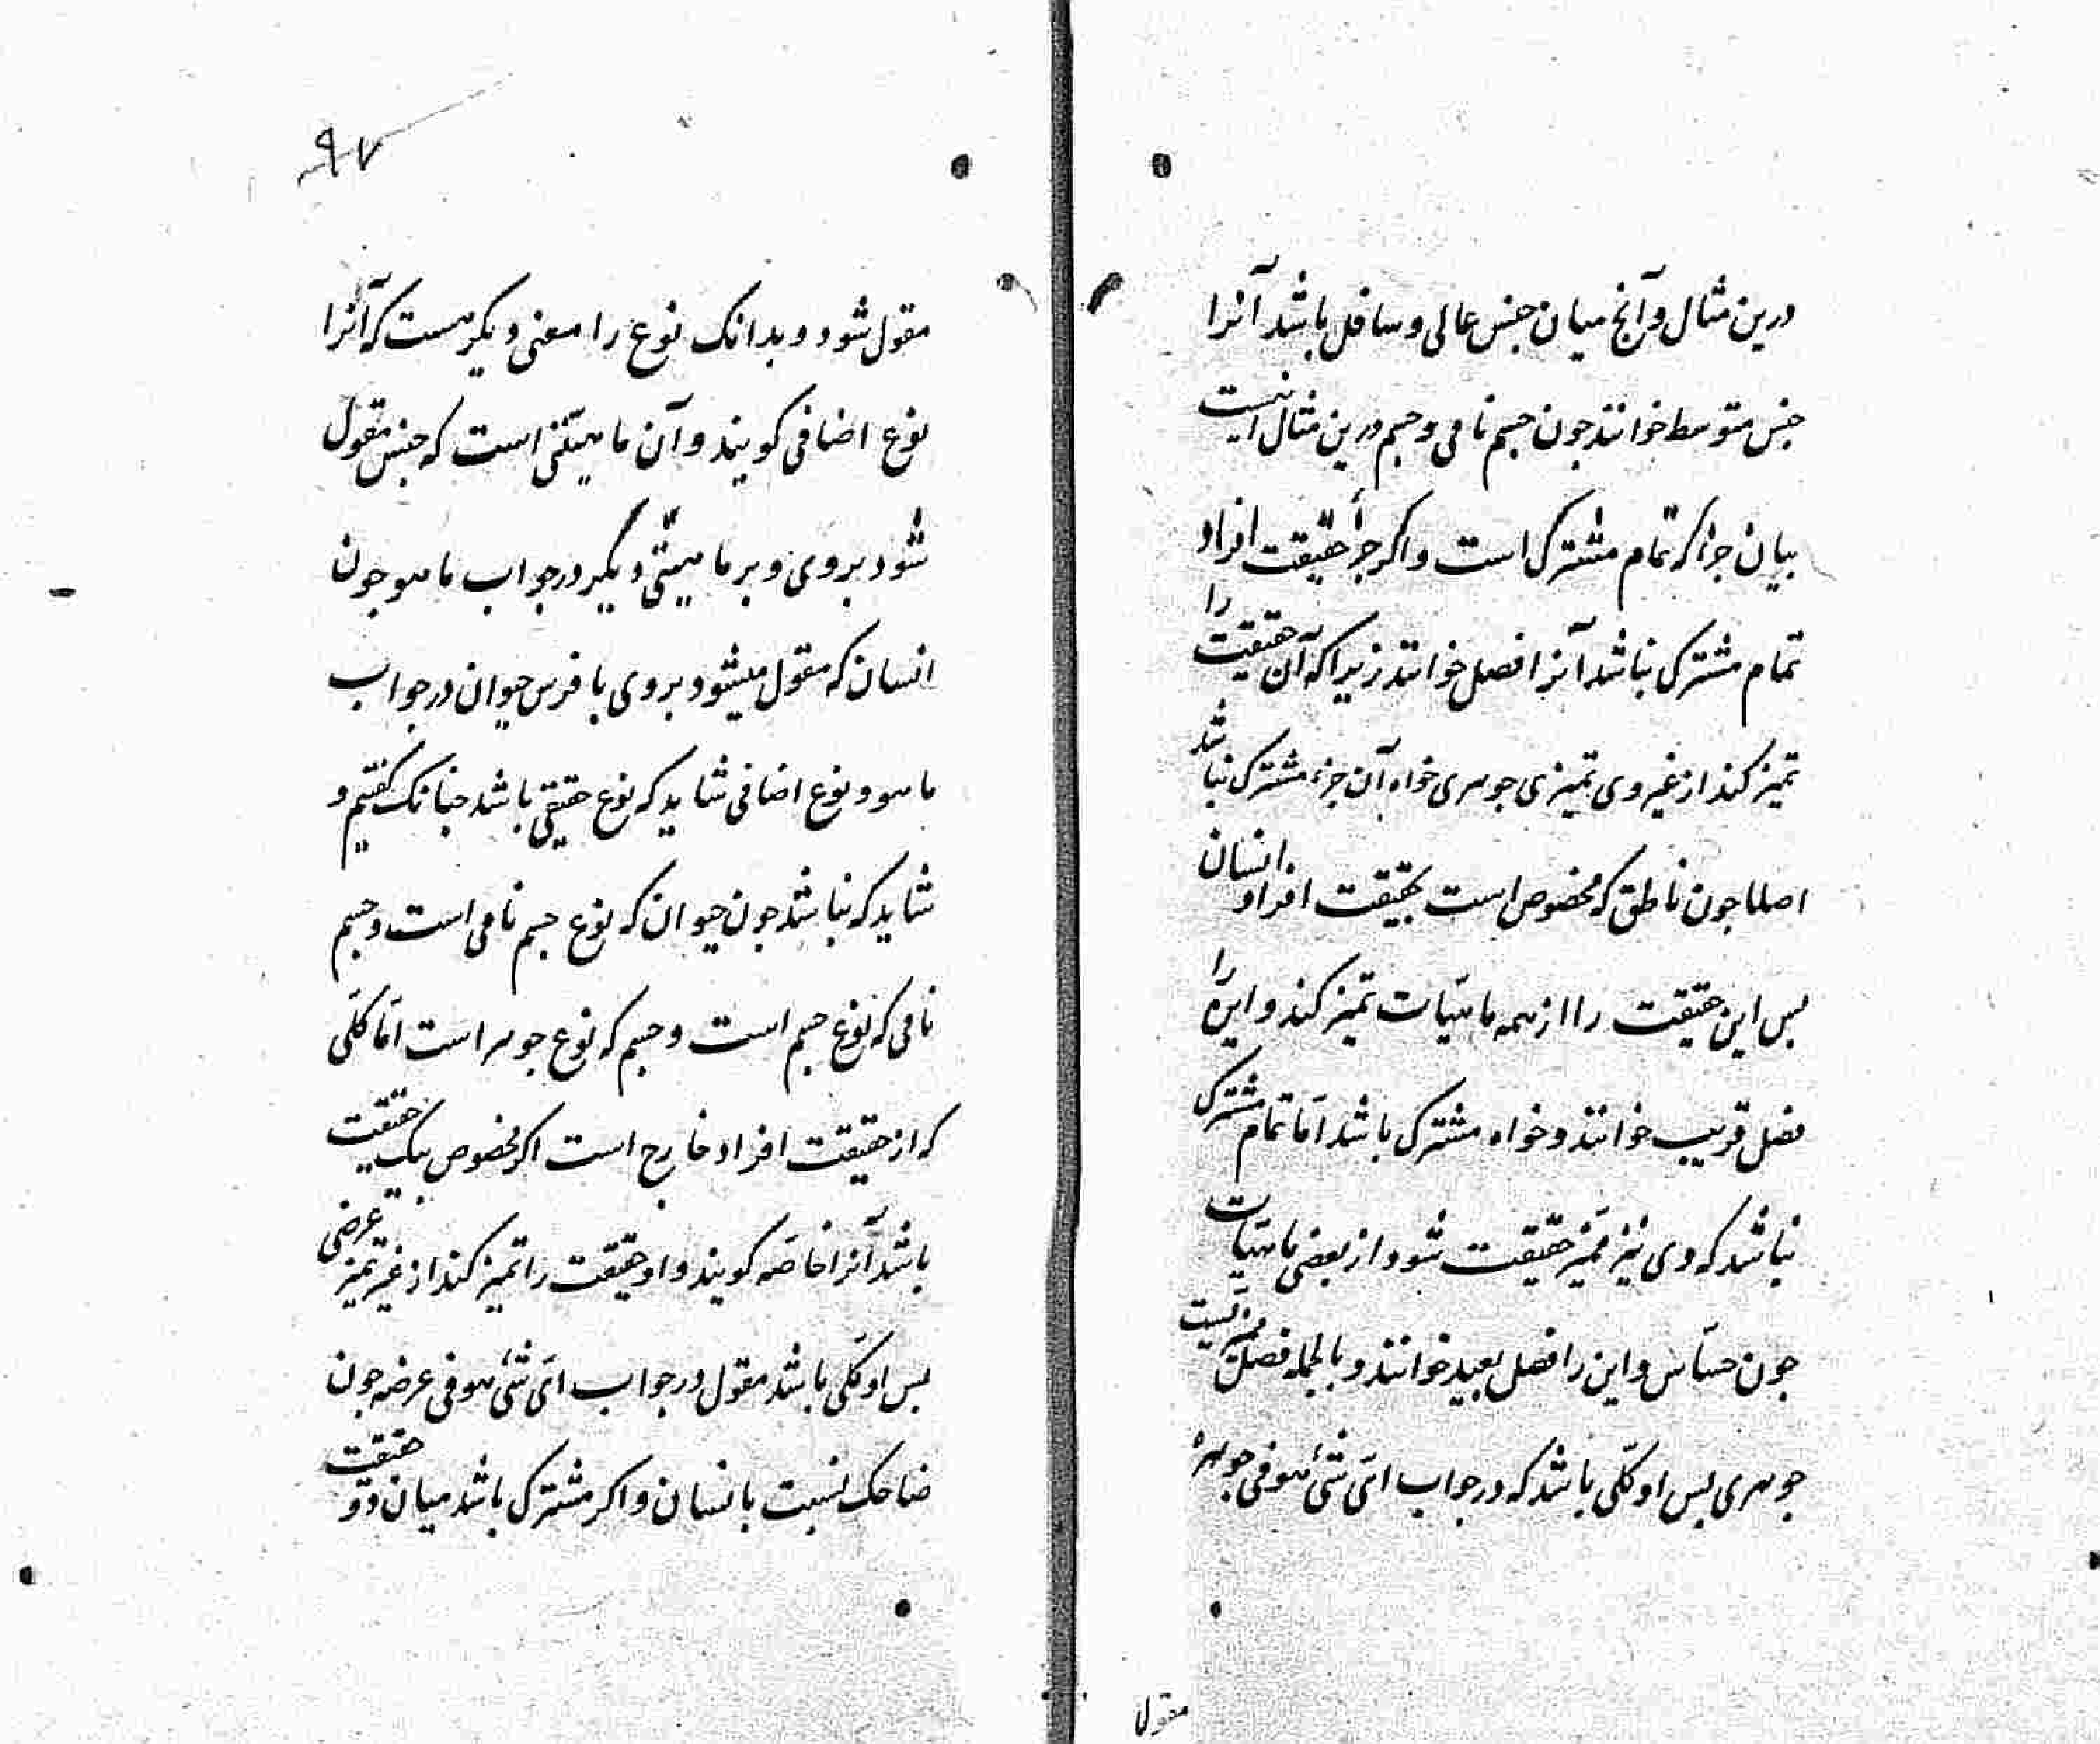 درین مثال وآنچ میان جنس عالی وسافل باشد آنرا
جنس متوسط خوانند جون جسم نامی وجسم درین مثال اینست
بیان جزئی که تمام مشترک است واکر جزأ حقیقت افراد
تمام مشترک نباشد آنرا فصل خوانند زیرا که آن حقیقت را
تمیز کند از غیر وی تمیزی جوهری خواه آن جزء مشترک نباشد
اصلا جون ناطق که مخصوص است بحقیقت افراد انسان
بس این حقیقت را از همه ماهیّات تمیز کند و این را
فصل قریب خوانند و خواه مشترک باشد امّا تمام مشترک
نباشد که وی نیز ممیّز حقیقت شود از بعضی ماهیّات
جون حسّاس و این را فصل بعید خوانند و بالجمله فصل ممیّزیست
جوهری بس او کلّی باشد که در جواب ایّ شئ هو فی جوهره
مقول
۹۷
مقول شود و بدانک نوع را معنی دیکر هست که آنرا
نوع اضافی کویند و آن ماهیّتی است که جنس مقول
شود بروی و بر ماهیّتی دیکر در جواب ماهو جون
انسان که مقول میشود بروی با فرس حیوان در جواب
ماهو و نوع اضافی شاید که نوع حقیقی باشد جنانک کفتیم و
شاید که نباشد جون حیوان که نوع جسم نامی است وجسم
نامی که نوع جسم است وجسم که نوع جوهر است امّا کلّی
که از حقیقت افراد خارج است اکر مخصوص بیک حقیقت
باشد آنرا خاصّه کویند و او حقیقت را تمیز کند از غیر تمیز عرضی
بس او کلّی باشد مقول در جواب ایّ شئ هو فی عرضه جون
ضاحک نسبت بانسان و اکر مشترک باشد میان دو حقیقت